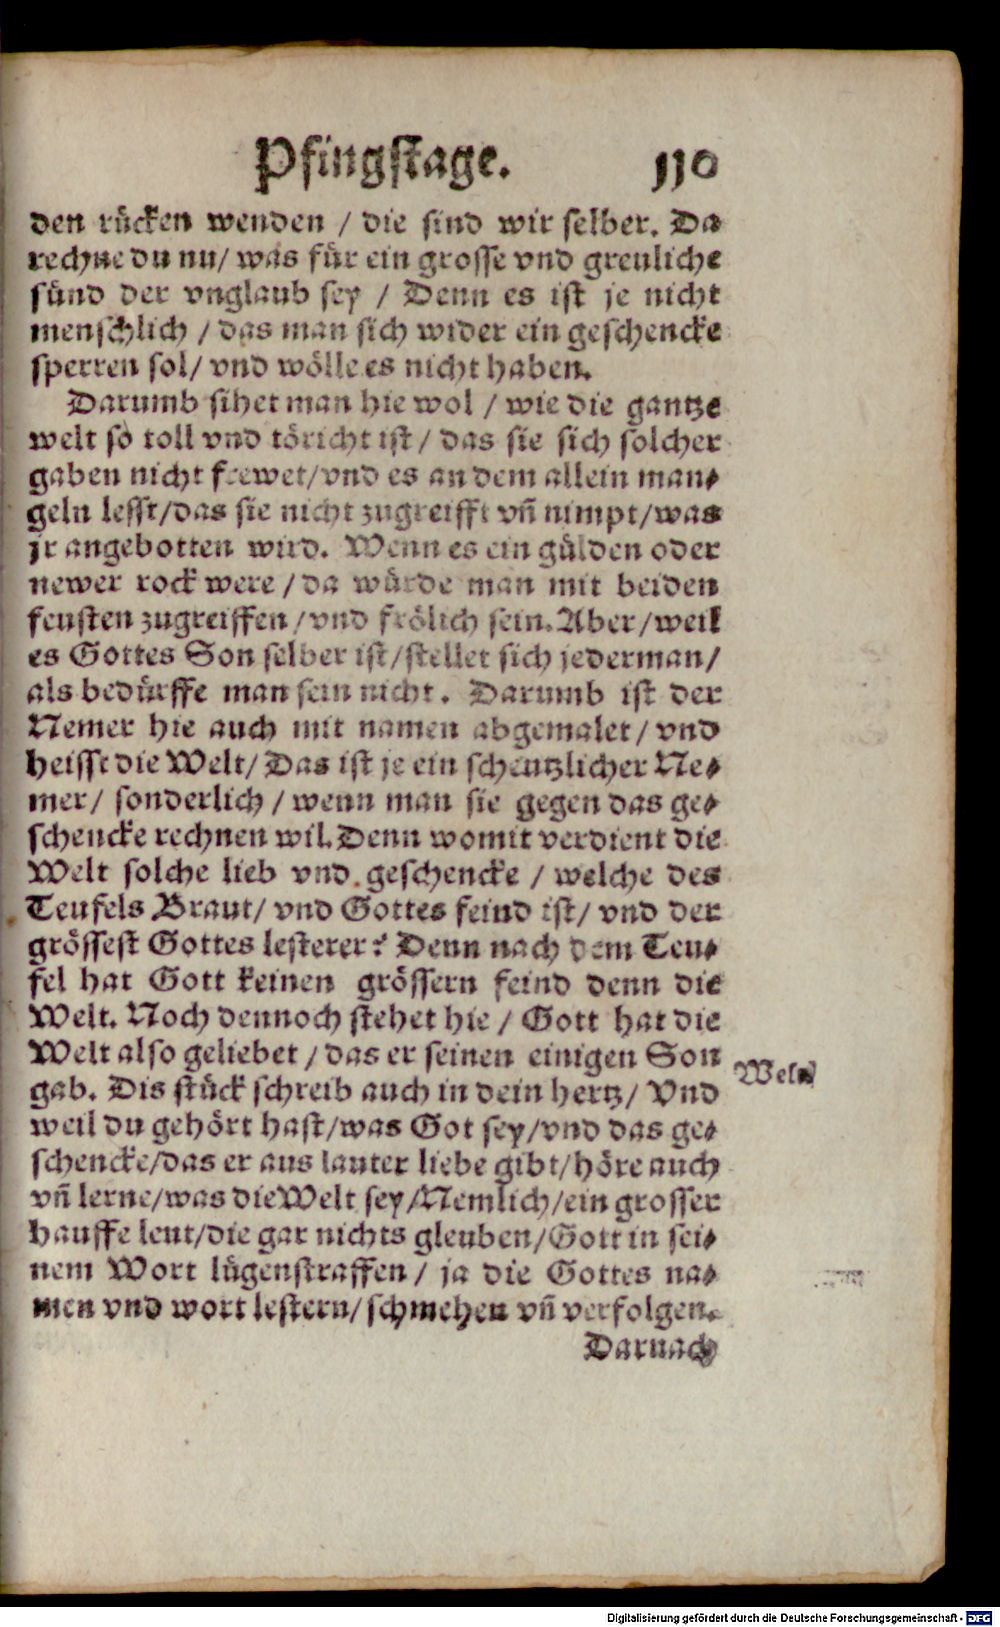 Pfingstage. 110
den rücken wenden / die sind wir selber. Da
rechne du nu/ was für ein grosse vnd greuliche
sünd der vnglaub sey / Denn es ist je nicht
menschlich / das man sich wider ein geschencke
sperren sol/ vnd wölle es nicht haben.
Darumb sihet man hie wol / wie die gantze
welt so toll vnd töricht ist/ das sie sich solcher
gaben nicht frewet/vnd es an dem allein man⸗
geln lesst/das sie nicht zugreifft vñ nimpt/was
jr angebotten wird. Wenn es ein gülden oder
newer rock were / da würde man mit beiden
feusten zugreiffen / vnd frölich sein. Aber/weil
es Gottes Son selber ist/stellet sich jederman/
als bedürffe man sein nicht. Darumb ist der
Nemer hie auch mit namen abgemalet/ vnd
heisst die Welt/ Das ist je ein scheutzlicher Ne⸗
mer/ sonderlich / wenn man sie gegen das ge⸗
schencke rechnen wil. Denn womit verdient die
Welt solche lieb vnd geschencke / welche des
Teufels Braut/ vnd Gottes feind ist/ vnd der
grössest Gottes lesterer? Denn nach dem Teu⸗
fel hat Gott keinen grössern feind denn die
Welt. Noch dennoch stehet hie / Gott hat die
Welt also geliebet / das er seinen einigen Son
gab. Dis stück schreib auch in dein hertz/ Vnd
weil du gehört hast/was Got sey/vnd das ge⸗
schencke/das er aus lauter liebe gibt/höre auch
vñ lerne/was die Welt sey/Nemlich/ein grosser
hauffe leut/die gar nichts gleuben/Gott in sei⸗
nem Wort lügenstraffen/ ja die Gottes na⸗
men vnd wort lestern/ schmehen vñ verfolgen.
Darnach
Digitalisierung gefördert durch die Deutsche Forschungsgemeinschaft - DFG